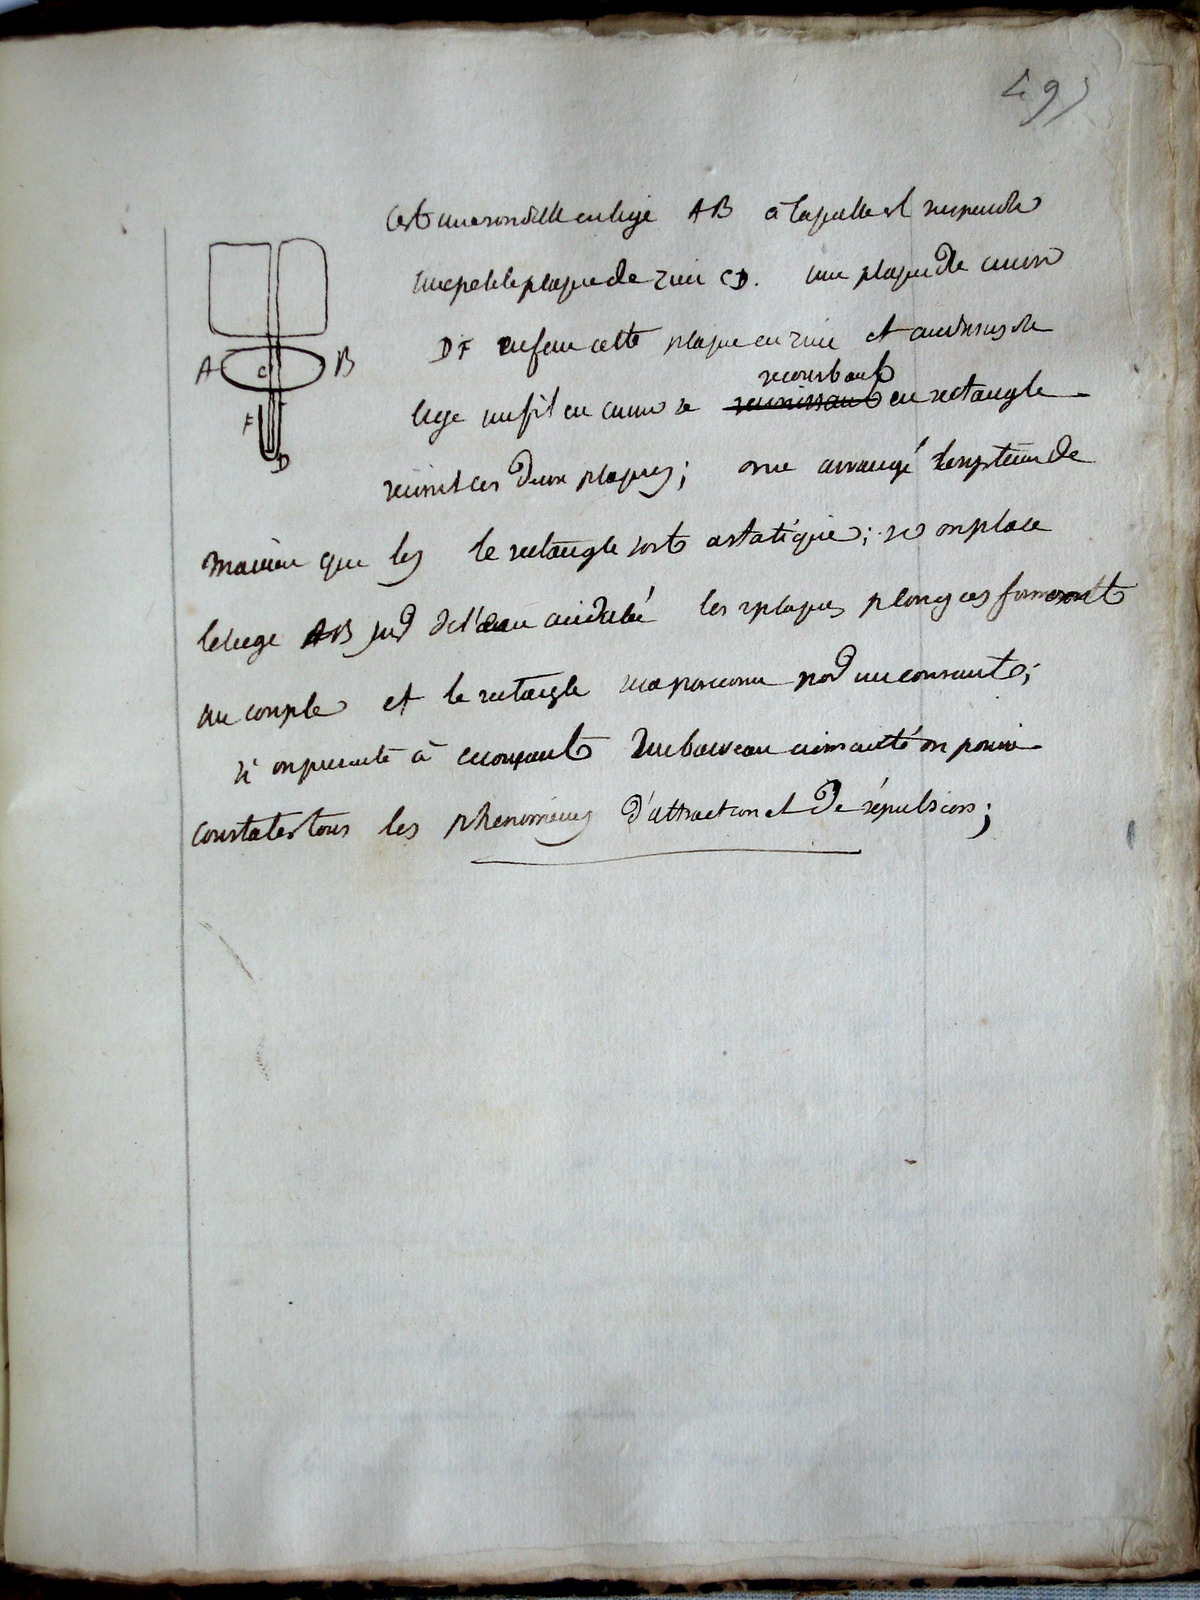 495
C'est une rondelle en liège AB à laquelle est suspendue
une petite plaque de zinc CD. une plaque de cuivre
DF enferme cette plaque en zinc et au dessus du
A B
C
F
D
recourbant
liège un fil en cuivre se réunissant en rectangle
réunit ces deux plaques; on a arrangé le système de
manière que les le rectangle soit astatique; si on place
le liège AB sur de l'eau acidulé les 2 plaques plongées formeront
un couple et le rectangle sera parcouru par un courant;
si on présente à ce courant un barreau aimanté on pourra
constater tous les phénomènes d'attraction et de répulsion;